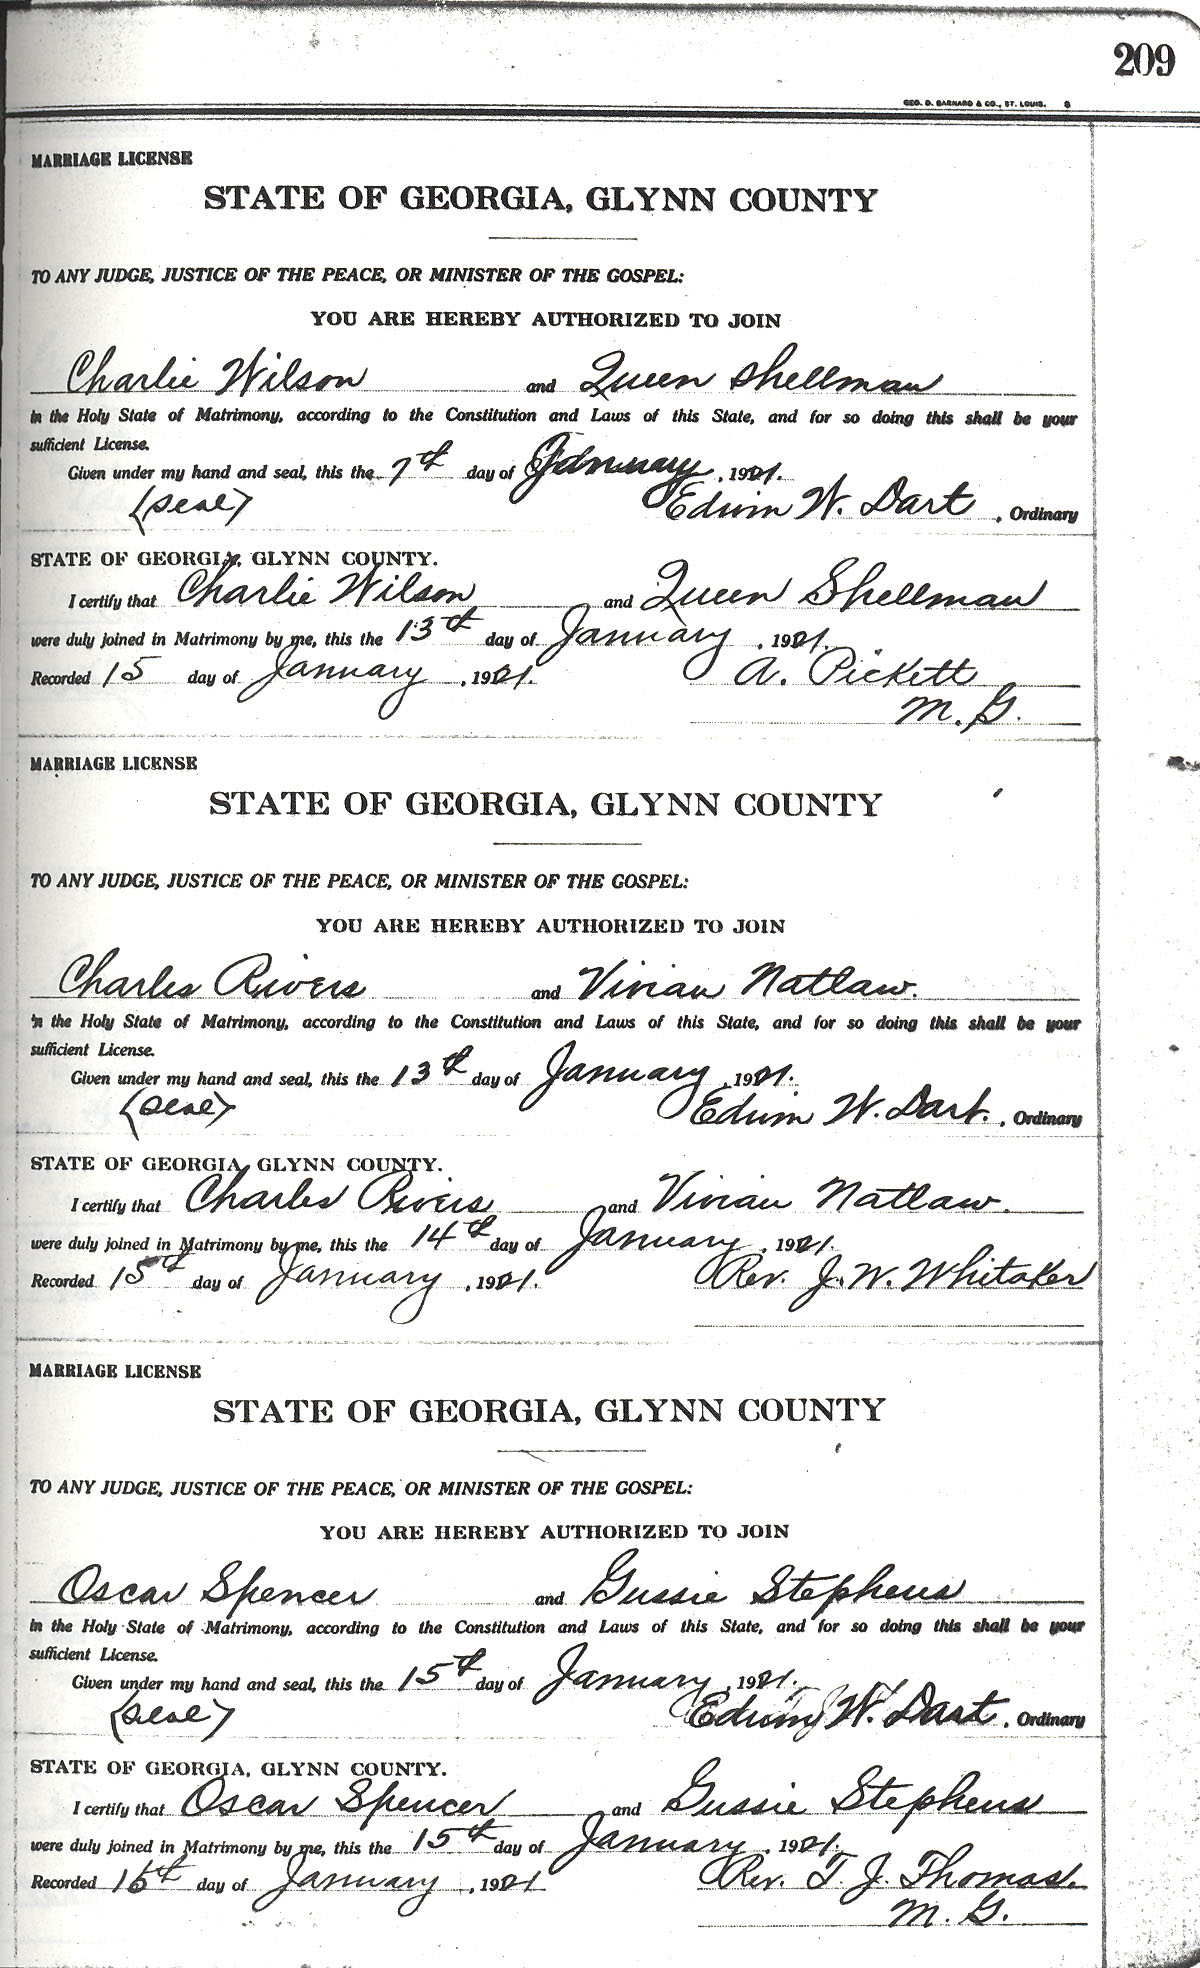 209
GEO. D. BARNARD & CO., ST. LOUIS. 8
MARRIAGE LICENSE
STATE OF GEORGIA, GLYNN COUNTY
TO ANY JUDGE, JUSTICE OF THE PEACE, OR MINISTER OF THE GOSPEL:
YOU ARE HEREBY AUTHORIZED TO JOIN
Charlie Wilson and Queen Shellman
in the Holy State of Matrimony, according to the Constitution and Laws of this State, and for so doing this shall be your
sufficient License.
Given under my hand and seal, this the 7th day of , 1921.
(Seal) Edwin W. Dart , Ordinary
STATE OF GEORGIA, GLYNN COUNTY.
I certify that Charlie Wilson and Queen Shellman
were duly joined in Matrimony by me, this the 13th day of January , 1921.
Recorded 15 day of January , 1921. A. Pickett
M. G.
MARRIAGE LICENSE
STATE OF GEORGIA, GLYNN COUNTY
TO ANY JUDGE, JUSTICE OF THE PEACE, OR MINISTER OF THE GOSPEL:
YOU ARE HEREBY AUTHORIZED TO JOIN
Charles Rivers and Vivian Natlaw.
in the Holy State of Matrimony, according to the Constitution and Laws of this State, and for so doing this shall be your
sufficient License.
Given under my hand and seal, this the 13th day of January , 1921.
(Seal) Edwin W. Dart. , Ordinary
STATE OF GEORGIA, GLYNN COUNTY.
I certify that Charles Rivers and Vivian Natlaw.
were duly joined in Matrimony by me, this the 14th day of January , 1921.
Recorded 15th day of January , 1921. Rev. J. W. Whitaker
MARRIAGE LICENSE
STATE OF GEORGIA, GLYNN COUNTY
TO ANY JUDGE, JUSTICE OF THE PEACE, OR MINISTER OF THE GOSPEL:
YOU ARE HEREBY AUTHORIZED TO JOIN
Oscar Spencer and Gussie Stephens
in the Holy State of Matrimony, according to the Constitution and Laws of this State, and for so doing this shall be your
sufficient License.
Given under my hand and seal, this the 15th day of January , 1921.
(Seal) Edwin W. Dart , Ordinary
STATE OF GEORGIA, GLYNN COUNTY.
I certify that Oscar Spencer and Gussie Stephens
were duly joined in Matrimony by me, this the 15th day of January , 1921.
Recorded 16th day of January , 1921 Rev. T. J. Thomas.
M. G.